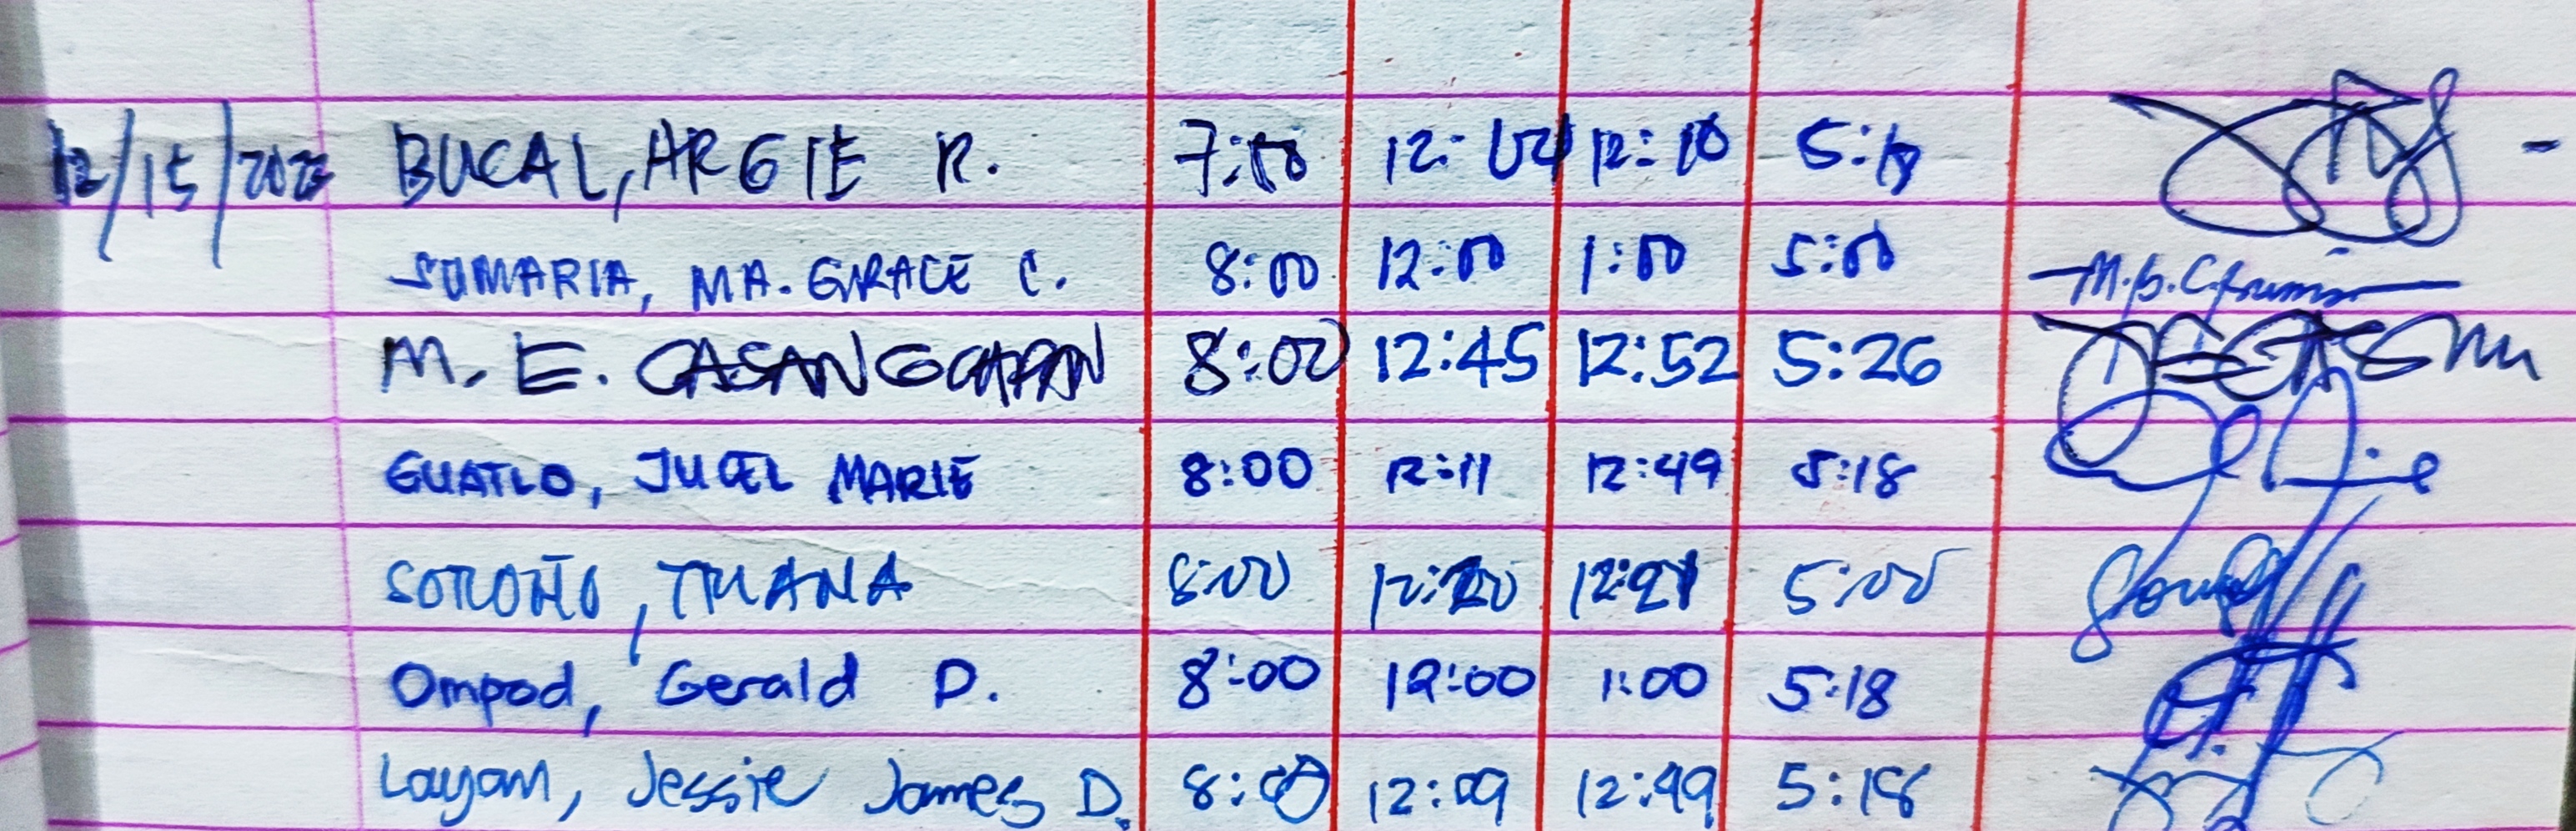 12/15/2023 BUCAL, ARGIE R. 12:04 12:10
SUMARIA, MA. GRACE C. 8:00 12:00 1:00 5:00
M. E. CASANGCAPAN 8:00 12:45 12:52 5:26
GUATLO, JUCEL MARIE 8:00 12:11 12:49 5:18
8:00 12:20 12:21 5:00
Ompod, Gerald D. 8:00 12:00 1:00 5:18
Layam, Jessie James D. 8:00 12:09 12:49 5:18